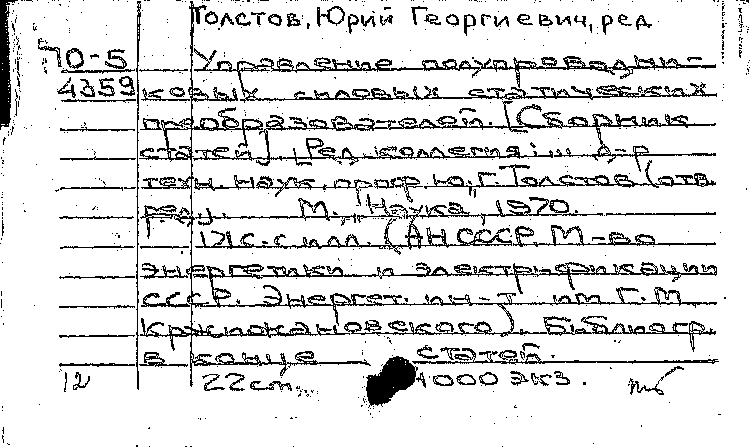 Толстов, Юрий Георгиевич, ред
70-5 Управление полупроводни-
4359 ковых силовых статических
преобразователей. [Сборник
статей]. [Ред. коллегия: ... д-р
техн. наук, проф. Ю.Г. Толстов (отв.
ред.)]. М., "Наука", 1970.
171 с. с илл. (АН СССР. М-во
энергетики и электрификации
СССР. Энергет. ин-т им Г.М
Кржижановского). Библиогр.
в конце статей.
12 22 см. 1000 экз.